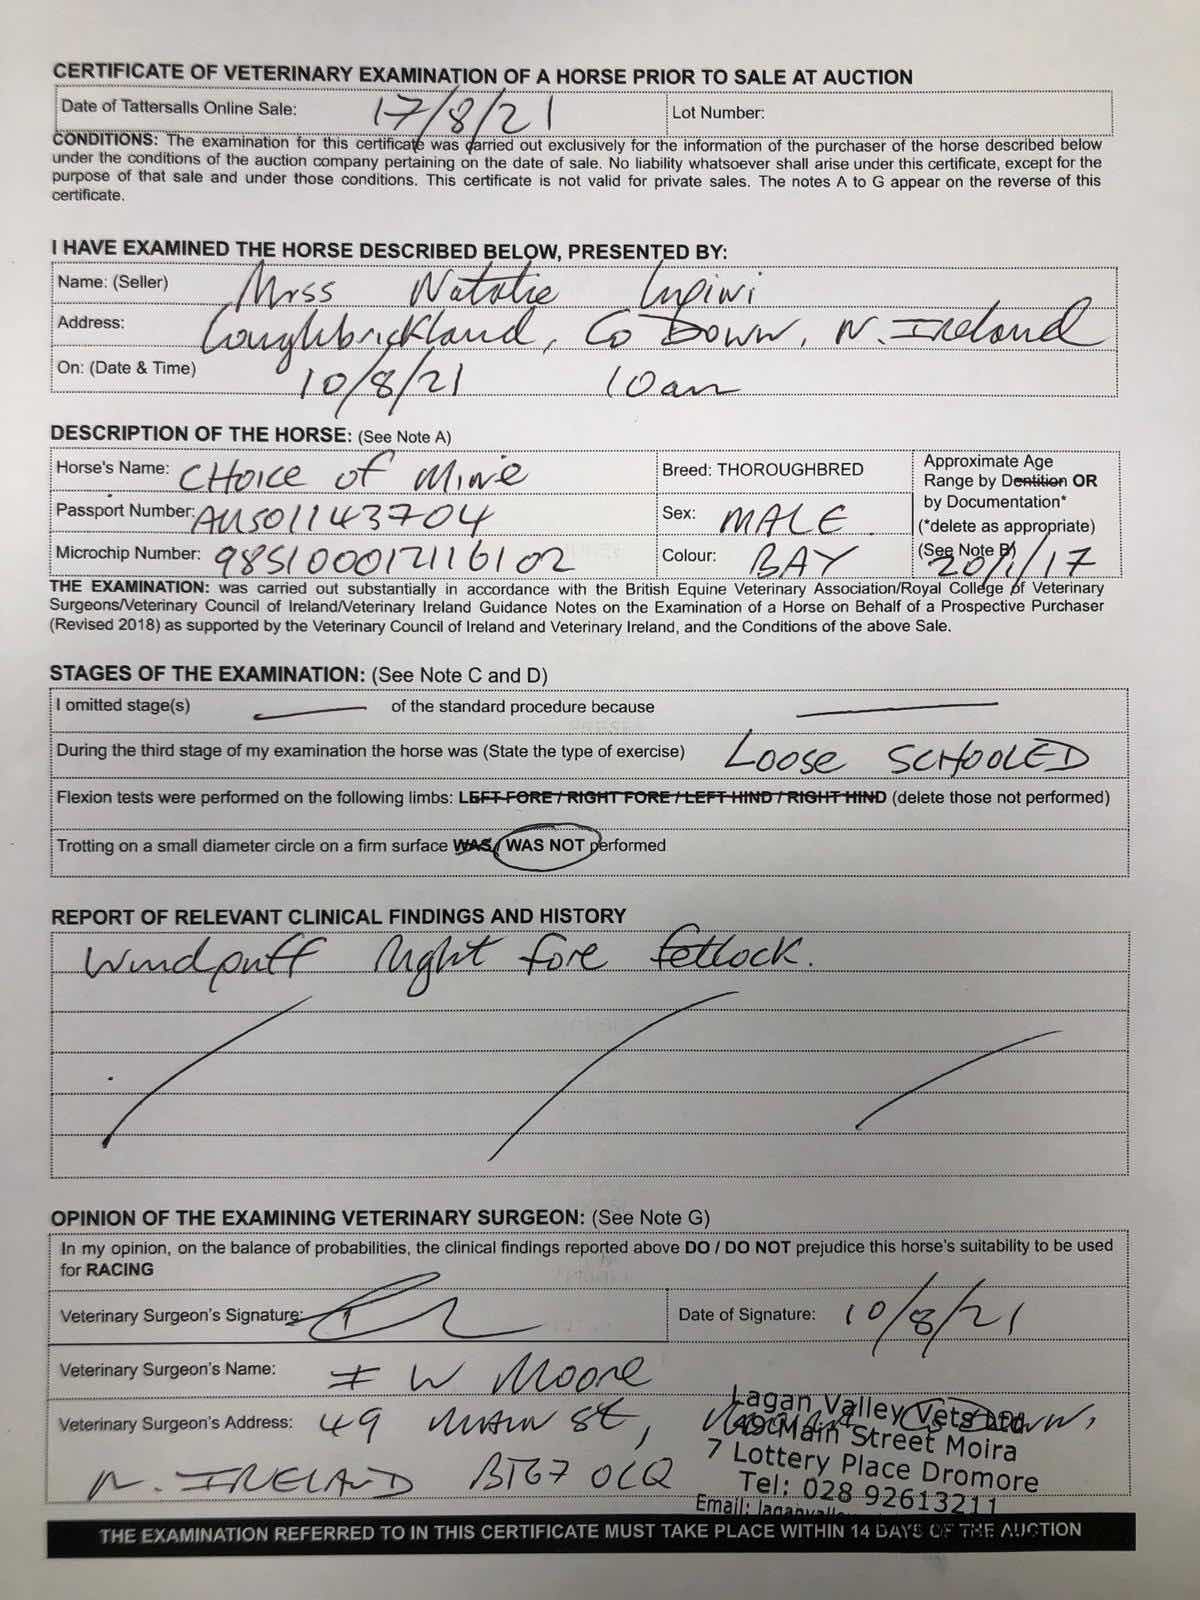 CERTIFICATE OF VETERINARY EXAMINATION OF A HORSE PRIOR TO SALE AT AUCTION
Date of Tattersalls Online Sale: 17/8/21 Lot Number:
CONDITIONS: The examination for this certificate was carried out exclusively for the information of the purchaser of the horse described below
under the conditions of the auction company pertaining on the date of sale. No liability whatsoever shall arise under this certificate, except for the
purpose of that sale and under those conditions. This certificate is not valid for private sales. The notes A to G appear on the reverse of this
certificate.
I HAVE EXAMINED THE HORSE DESCRIBED BELOW, PRESENTED BY:
Name: (Seller) Mrss Natalie Lupini
Address: Loughbrickland, Co Down, N. Ireland
On: (Date & Time) 10/8/21 10am
DESCRIPTION OF THE HORSE: (See Note A)
Horse's Name: CHoice of Mine Breed: THOROUGHBRED
Passport Number: AUS01143704 Sex: MALE
Microchip Number: 985100012116102 Colour: BAY
Approximate Age
Range by Dentition OR
by Documentation*
(*delete as appropriate)
(See Note B) 20/1/17
THE EXAMINATION: was carried out substantially in accordance with the British Equine Veterinary Association/Royal College of Veterinary
Surgeons/Veterinary Council of Ireland/Veterinary Ireland Guidance Notes on the Examination of a Horse on Behalf of a Prospective Purchaser
(Revised 2018) as supported by the Veterinary Council of Ireland and Veterinary Ireland, and the Conditions of the above Sale.
STAGES OF THE EXAMINATION: (See Note C and D)
I omitted stage(s) of the standard procedure because
During the third stage of my examination the horse was (State the type of exercise) Loose SCHOOLED
Flexion tests were performed on the following limbs: LEFT FORE / RIGHT FORE / LEFT HIND / RIGHT HIND (delete those not performed)
Trotting on a small diameter circle on a firm surface WAS / WAS NOT performed
REPORT OF RELEVANT CLINICAL FINDINGS AND HISTORY
Windpuff Right fore fetlock.
OPINION OF THE EXAMINING VETERINARY SURGEON: (See Note G)
In my opinion, on the balance of probabilities, the clinical findings reported above DO / DO NOT prejudice this horse's suitability to be used
for RACING
Veterinary Surgeon's Signature: Date of Signature: 10/8/21
Veterinary Surgeon's Name: W Moore
Veterinary Surgeon's Address: 49 MAIN St,
N. IRELAND BT67 0LQ
Lagan Valley Vets Ltd
49 Main Street Moira
7 Lottery Place Dromore
Tel: 028 92613211
Email:
THE EXAMINATION REFERRED TO IN THIS CERTIFICATE MUST TAKE PLACE WITHIN 14 DAYS OF THE AUCTION